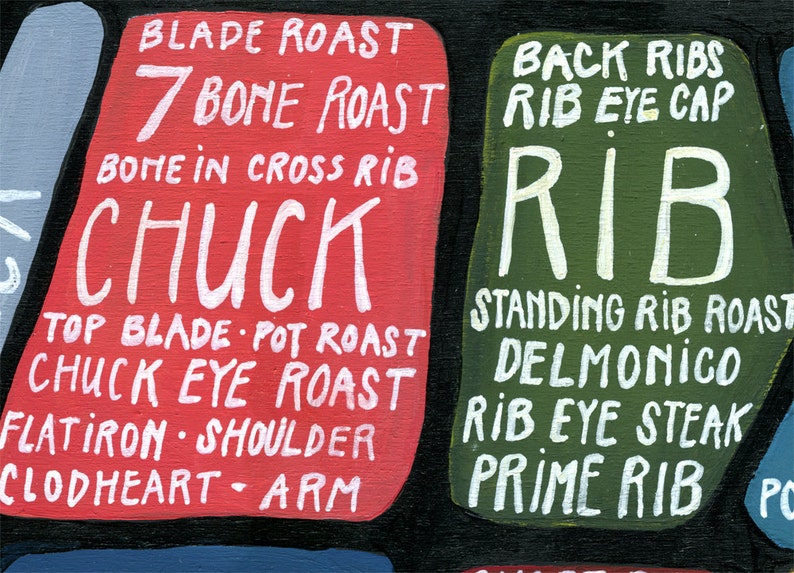 BLADE ROAST
7 BONE ROAST
BONE IN CROSS RIB
CHUCK
TOP BLADE · POT ROAST
CHUCK EYE ROAST
FLATIRON · SHOULDER
CLODHEART · ARM
BACK RIBS
RIB EYE CAP
RIB
STANDING RIB ROAST
DELMONICO
RIB EYE STEAK
PRIME RIB
PO